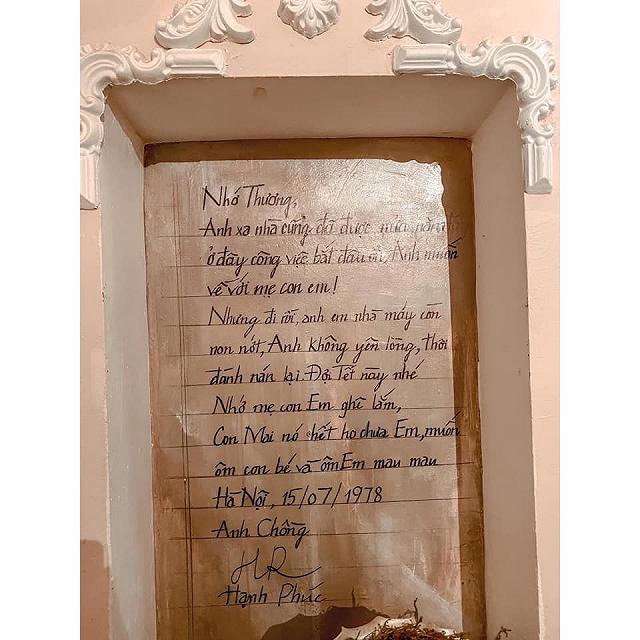 Nhớ Thương,
Anh xa nhà cũng đã được nửa năm
ở đây công việc bắt đầu ổn, Anh muốn
về với mẹ con em!
Nhưng đi rồi, anh em nhà máy còn
non nớt, Anh không yên lòng, thôi
đành nán lại Đợi Tết này nhé
Nhớ mẹ con Em ghê lắm,
Con Mai nó hết ho chưa Em, muốn
ôm con bé và ôm Em mau mau
Hà Nội, 15/07/1978
Anh Chồng
HR
Hạnh Phúc